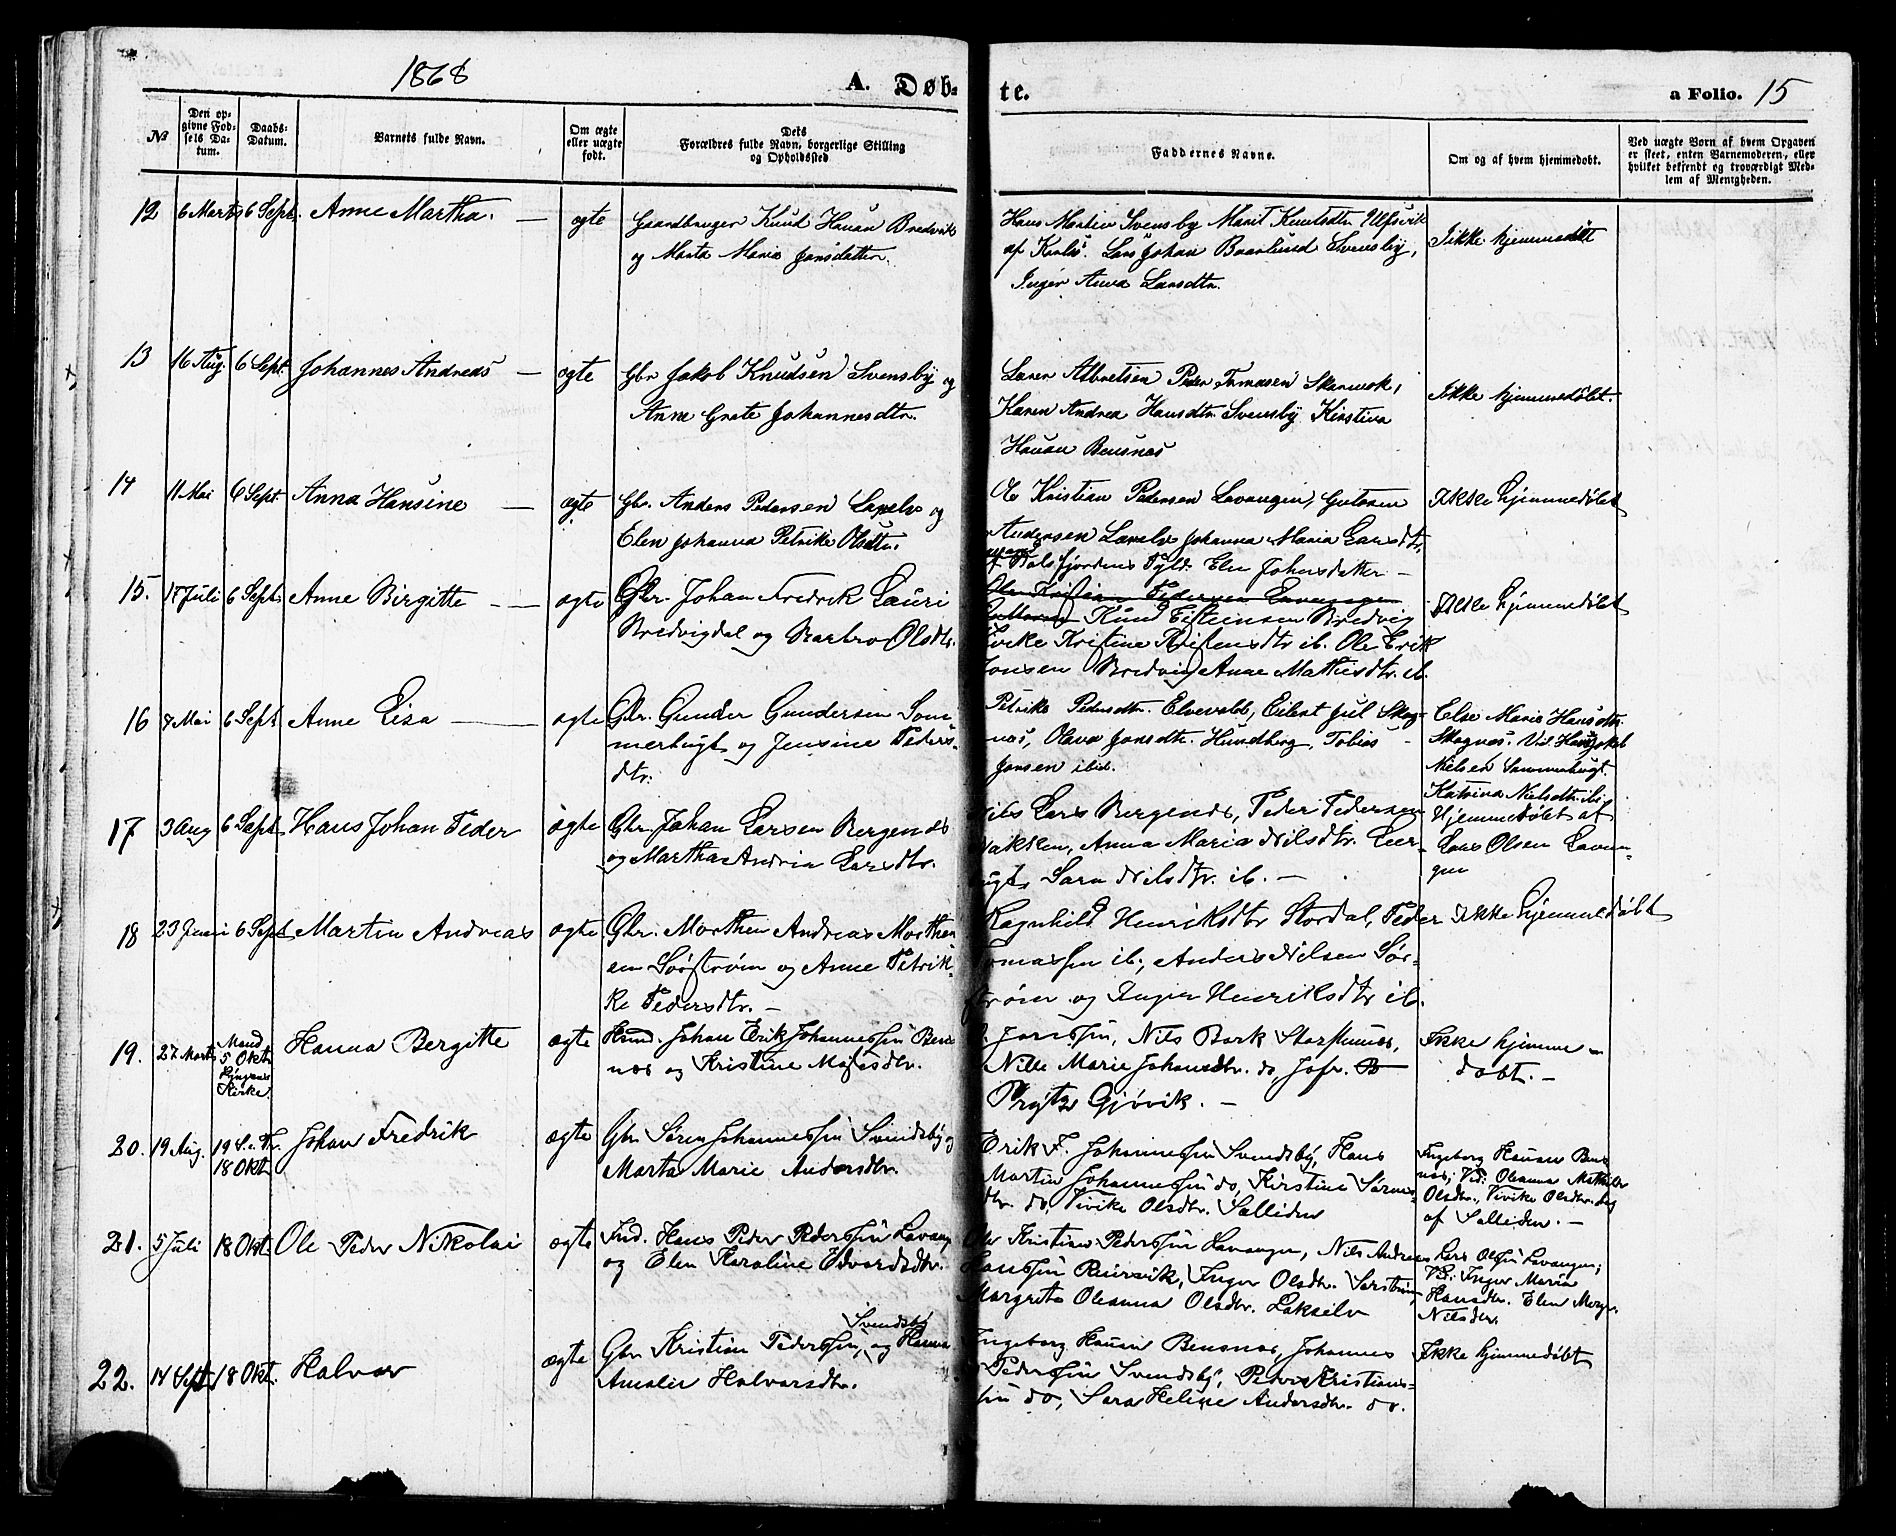 1868
A. Døb-
te.
a Folio. 15
№
Den op-
givne Fød-
sels Da-
tum.
Daabs-
Datum.
Barnets fulde Navn.
Om ægte
eller uægte
født.
Dets
Forældres fulde Navn, borgerlige Stilling
og Opholdssted
Faddernes Navne.
Om og af hvem hjemmedøbt.
Ved uægte Børn af hvem Opgaven
er skeet, enten Barnemoderen, eller
hvilket bekjendt og troværdigt Med-
lem af Menigheden.
12 6 Marts 6 Sept. Anne Martha. — ægte
Gaardbruger Knud Hauan Bredvik
og Marta Maria Jansdatter.
Hans Martin Svensby Marit Knutsdtr. Ulfsvik
af Karlsø. Lars Johan Baarlund Svensby,
Inger Anna Larsdtr.
Ikke hjemmedøbt
13 16 Aug. 6 Sept. Johannes Andreas — ægte
Gbr Jakob Knudsen Svensby og
Anne Grete Johannesdtr.
Lærer Albretsen Peder Tomasen
Karen Andrea Hansdtr. Svensby Kirstina
Hauan Bensnæs
Ikke hjemmedøbt.
14 11 Mai 6 Sept Anna Hansine — ægte
Gbr. Anders Pedersen Laxelv og
Elen Johanna Petrike Olsdtr.
Ole Kristian Pedersen Lavangen,
Andersen Laxelv Johanna Maria Larsdtr.
af Balsfjordens Elen Johnsdatter —
Ikke hjemmedøbt
15. 17 Juli 6 Sept. Anne Birgitte — — ægte
Gbr. Johan Fredrik Lauri
Bredvigdal og Barbro Olsdtr.
Ole Kristian Pedersen Lavangen
Knud Eisteinsen Bredvig
Kristine Kristensdtr ib. Ole Erik
Jonsen Bredvig Anne Mathisdtr. ib.
Ikke hjemmedøbt
16 7 Mai 6 Sept Anne Lisa — ægte
Gbr. Gunder Gundersen Som-
merbugt og Jensine Peders-
dtr.
Petrike Pedersdtr. Elvevold, Eilert Jul Skog-
næs, Olava Jansdtr. Hundberg, Tobias
Jansen ibid.
Else Maria Hansdtr.
Skognæs. Vid. Hans Jakob
Nielsen Sommerbugt.
Katrina Nielsdtr. ib.
17 3 Aug 6 Sept. Hans Johan Peder ægte
Gbr. Johan Larsen Bergenes
og Martha Andria Larsdtr.
Nils Lars Bergenes, Peder Pedersen
Nakken, Anna Maria Nilsdtr. Leer-
bugt, Sara Nilsdtr. ib. —
Hjemmedøbt af
Lars Olsen Lavan-
gen
18 23 Juni 6 Sept Martin Andreas ægte
Gbr. Morthen Andreas Morthen-
sen Sørstrøm og Anne Petrik-
ke Pedersdtr. —
Ragnhild Henriksdtr Stordal, Peder
Tomassen ib., Anders Nilsen Sør-
strøm og Inger Henriksdtr ib.
Ikke hjemmedøbt
19. 27 Marts
Mand
5 Okt.
Kirke.
Hanna Bergitte ægte
Johan Erik Johannessen Bens-
næs og Kristine Mosesdtr.
Janssen, Nils Bark Storstennes,
Nille Marie Johansdtr. do, Jofr. B
Prytz Gjøvik. —
Ikke hjemme-
døbt. —
20. 19 Aug. 19 S. e. Tr.
18 Okt
Johan Fredrik ægte
Gbr Søren Johannessen Svendsby og
Marta Marie Andersdtr.
Erik F. Johannessen Svendsby, Hans
Martin Johannessen do, Kirstine Sørens-
dtr. do, Vivike Olsdtr. Salliden
Ingeborg Hauan Bens-
næs, Vid. Oleanna Mathilde
Olsdtr., Vivike Olsdtr. beg
af Salliden. —
21. 5 Juli 18 Okt Ole Peder Nikolai ægte
Ind. Hans Peder Pederssen Lavang
og Elen Karoline Edvardsdtr.
Ole Kristian Pederssen Lavangen, Nils Andreas
Hanssen Reiervik, Inger Olsdtr. Sørstrøm,
Margrete Oleanna Olsdtr. Lakselv
Lars Olsen Lavangen;
Vid: Inger Maria
Hansdtr. Elen Margr.
Nilsdtr.
22. 14 Sept. 18 Okt. Halvor ægte
Svendsby
Gbr Kristian Pederssen, og Hanna
Amalie Halvorsdtr.
Ingeborg Hauan Bensnæs, Johannes
Pederssen Svendsby, Peder Kristians-
sen do, Sara Heline Andersdtr. do.
Ikke hjemmedøbt